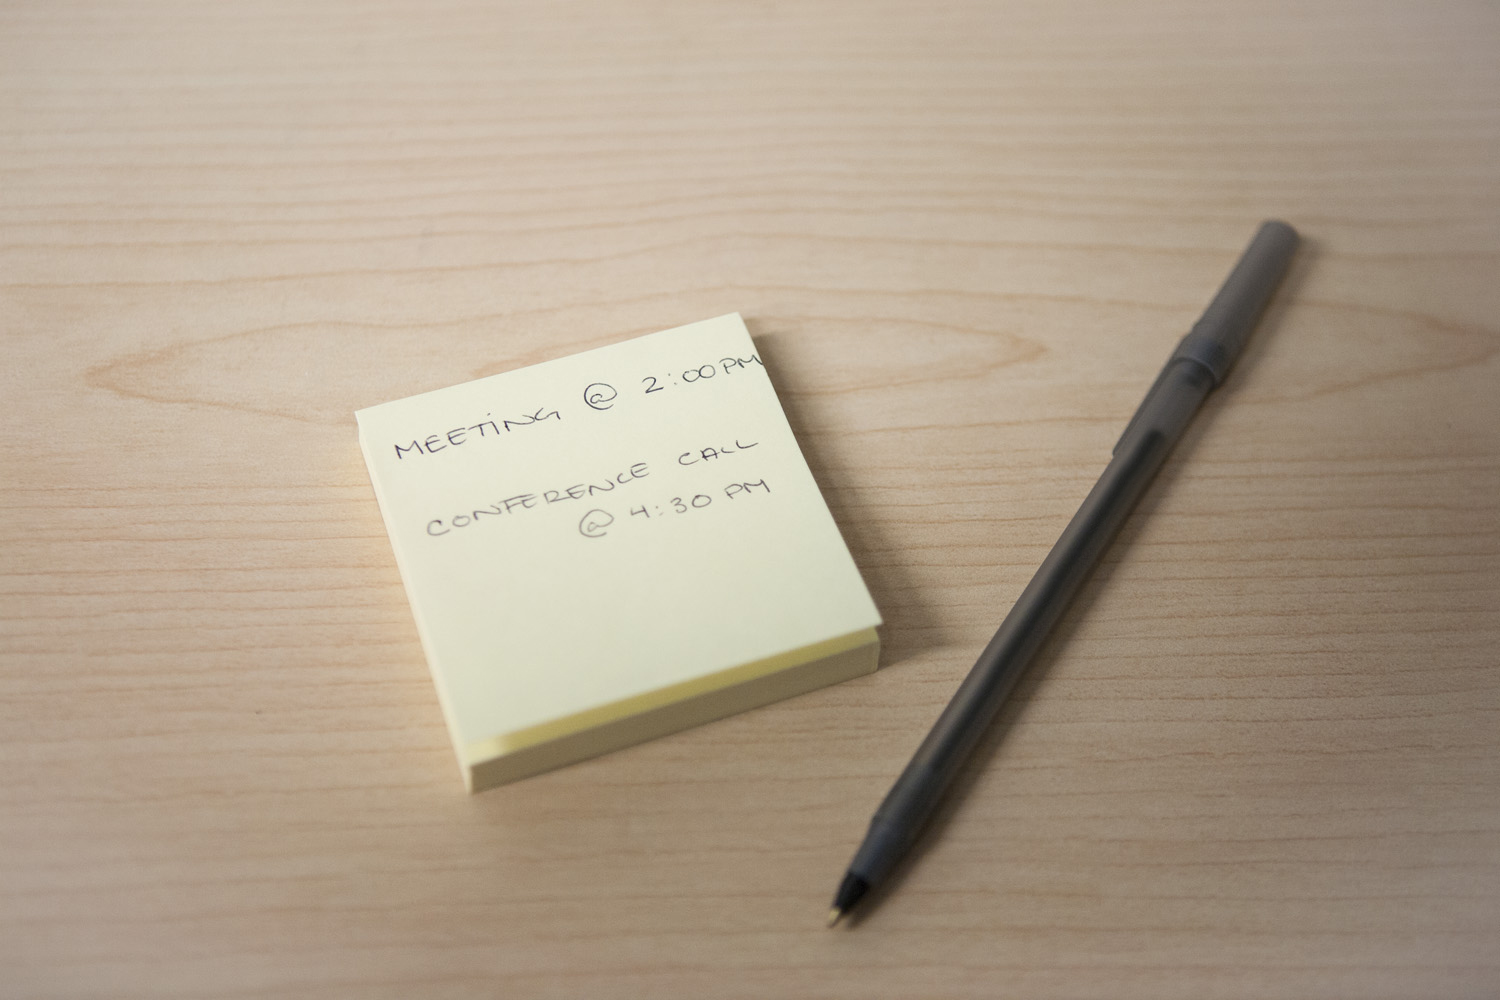 MEETING @ 2:00PM
CONFERENCE CALL
@ 4:30 PM